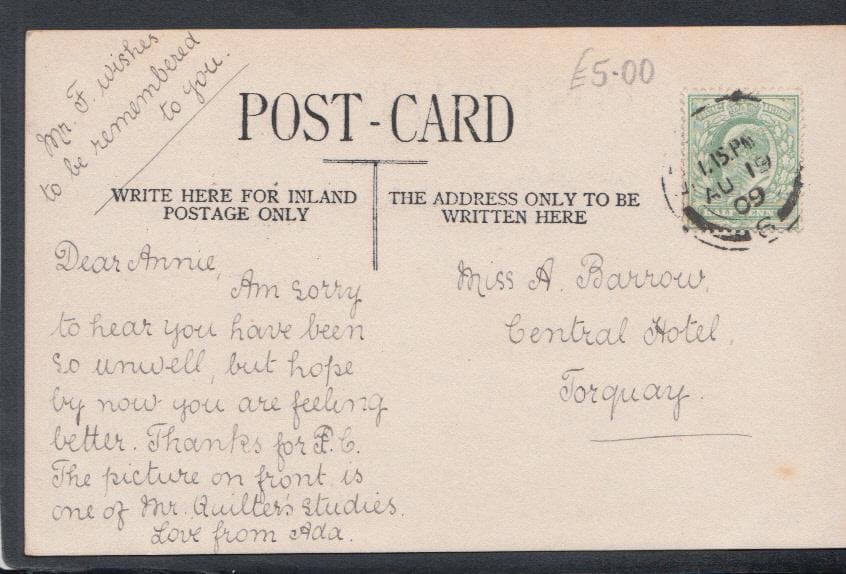 Mr. F wishes
to be remembered
to you.
£5-00
POST-CARD
WRITE HERE FOR INLAND
POSTAGE ONLY
THE ADDRESS ONLY TO BE
WRITTEN HERE
1.15.PM
AU 19
09
Dear Annie,
Am sorry
to hear you have been
so unwell, but hope
by now you are feeling
better. Thanks for P.C.
The picture on front is
one of Mr. Quilter's studies.
Love from Ada.
Miss A. Barrow,
Central Hotel,
Torquay.